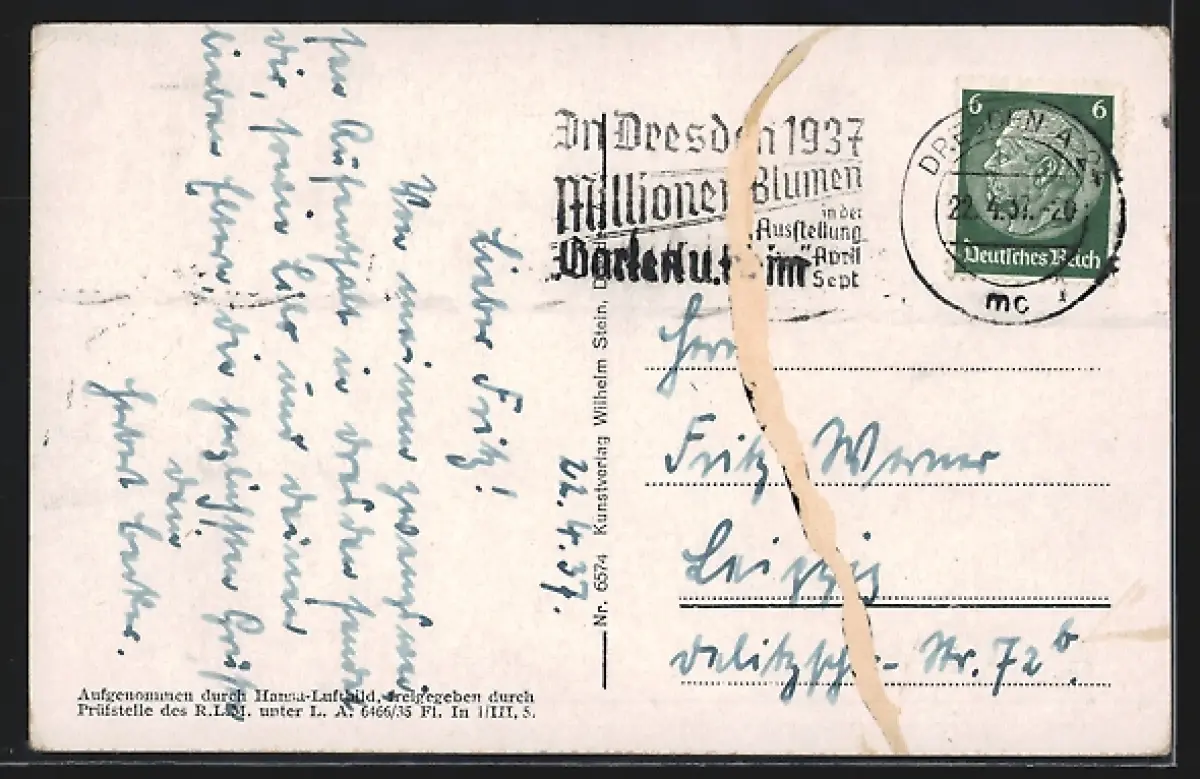 In Dresden 1937
Millionen Blumen
in der
Ausstellung
Garten u. Heim
April
Sept
6 6
Deutsches Reich
DRESDEN A 24
22.4.37.-20
mc
22.4.37.
Lieber Fritz!
Von meinem
Aufenthalt in Dresden sendet
dir, sowie und deinen
lieben Eltern, die herzlichsten Grüße
dein
Herbert
Nr. 6574 Kunstverlag Wilhelm Stein,
Herrn
Fritz Werner
Leipzig
Delitzscher-Str. 72 b.
Aufgenommen durch Hansa-Luftbild, freigegeben durch
Prüfstelle des R.L.M. unter L. A. 6466/35 Fl. In 1/III, 5.